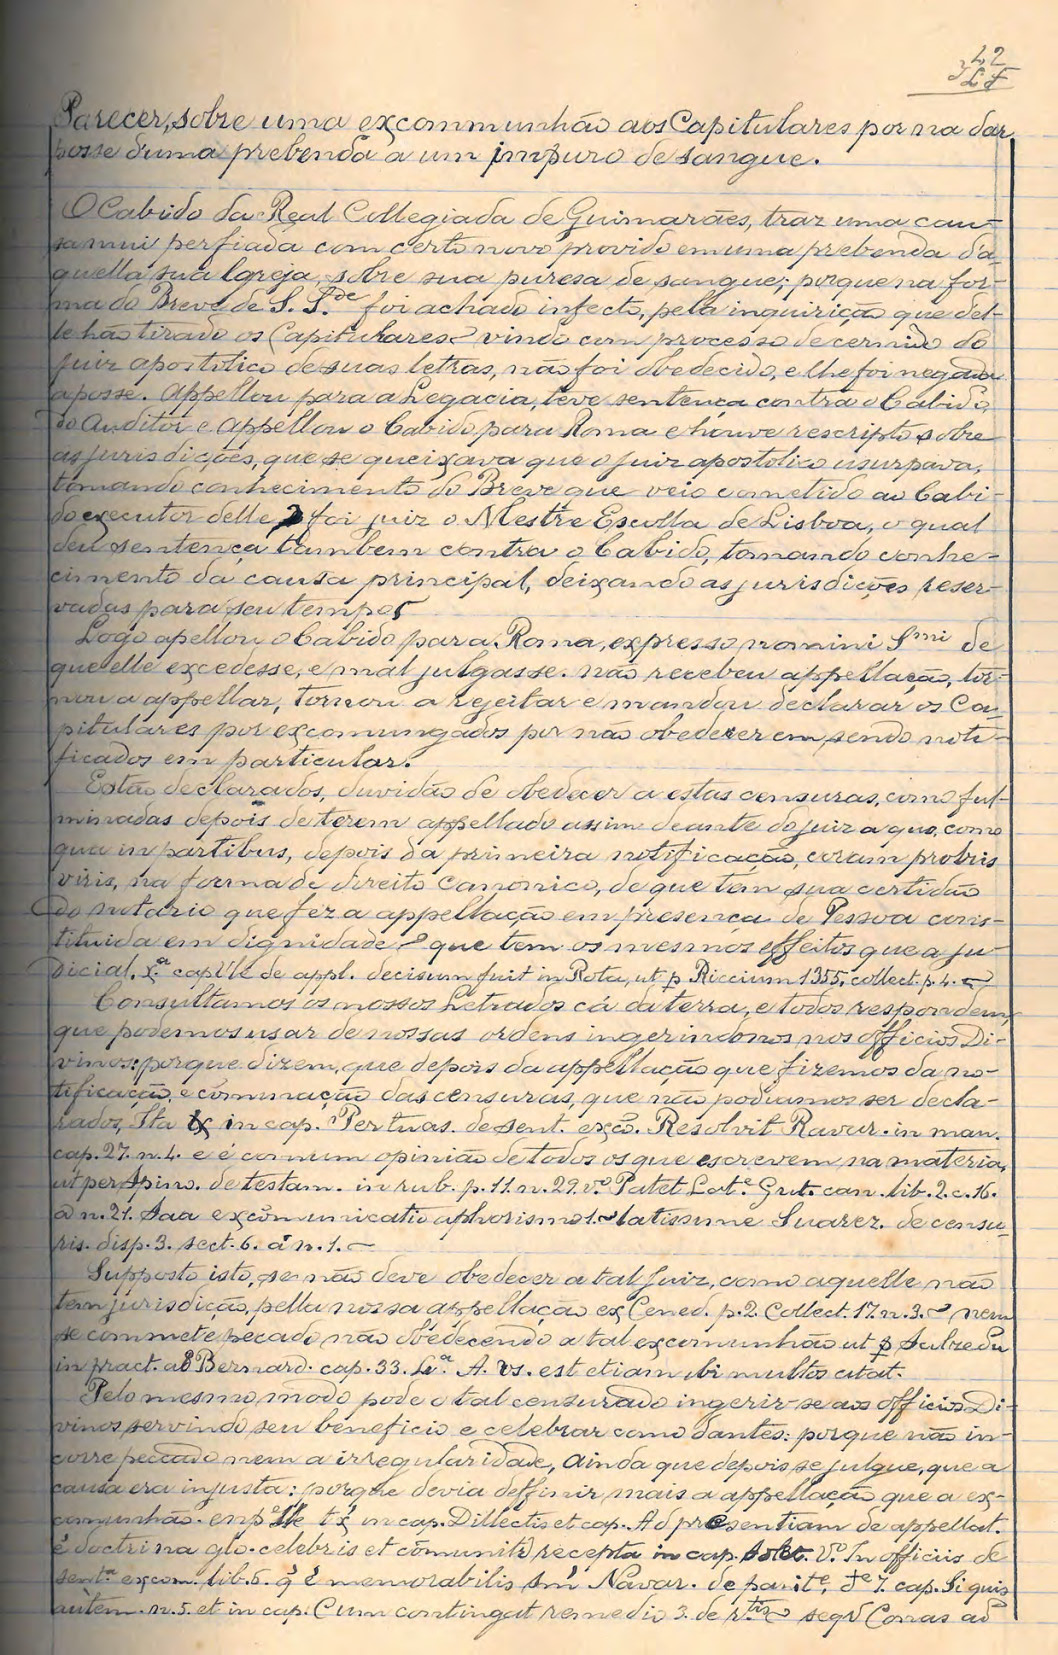 42
Parecer, sobre uma excommunhão aos Capitulares por na dar
posse d'uma prebenda a um impuro de sangue.
O Cabido da Real Collegiada de Guimarães, traz uma cau-
sa mui perfiada com certo novo provido em uma prebenda da-
quella sua Igreja, sobre sua puresa de sangue; porque na for-
ma do Breve de S. S.de foi achado infecto, pela inquirição que del-
le hão tirado os Capitulares e vindo com processo de cernido do
juiz apostolico de suas letras, não foi obedecido, e lhe foi negada
a posse. Appellou para a Legacia, teve sentença contra o Cabido,
do Auditor e appellou o Cabido para Roma e houve rescripto sobre
as jurisdições, que se queixava que o juiz apostolico usurpava,
tomando conhecimento do Breve que veio cometido ao Cabi-
do executor delle, foi juiz o Mestre Escolla de Lisboa, o qual
deu sentença tambem contra o Cabido, tomando conhe-
cimento da causa principal, deixando as jurisdições reser-
vadas para seu tempo
Logo apellou o Cabido para Roma, expresso nomini S.mi de
que elle excedesse, e mal julgasse. não recebeu appellação, tor-
nou a appellar, tornou a rejeitar e mandou declarar os Ca-
pitulares por excomungados por não obedecerem, sendo noti-
ficados em particular.
Estão declarados, duvidão de obedecer a estas censuras, como ful-
minadas depois de terem appellado assim deante do juiz a quo, como
qua in partibus, depois da primeira notificação, coram probris
viris, na forma de direito canonico, de que tem sua certidão
do notario que fez a appellação em presença de Pessoa cons-
tituida em dignidade e que tem os mesmos effeitos que a ju-
dicial. cap. de appl. decisum fuit in Rota, ut p Riccium 1355, collect. p. 4.
Consultamos os nossos Letrados cá da terra, e todos respondem,
que podemos usar de nossas ordens ingerindonos nos officios Di-
vinos: porque dizem, que depois da appellação que fizemos da no-
tificação, e cõminação das censuras, que não podiamos ser decla-
rados, Ita in cap. Pertuas. de sent. exco. Resolvit Ravar. in man.
cap. 27. n. 4. e é comum opinião de todos os que escrevem, na materia,
ut per Spino. de testam. in rub. p. 11. n. 29. v.º Patet Lat.e Grut. can. lib. 2. c. 16.
a n. 21. Saa excõmunicatio aphorismo 1. latissime Suarez. de censu-
ris. disp. 3. sect. 6. a n. 1.
Supposto isto, se não deve obedecer a tal Juiz, como aquelle não
tem jurisdição, pella nossa appellação ex Cened. p. 2. Collect. 17. n. 3. nem
se commete pecado não obedecendo a tal excomunhão ut p Salzedu
in pract. ad Bernard. cap. 33. L.ra A. vs. est etiam ubi multos citat.
Pelo mesmo modo pode o tal censurado ingerir-se aos officios Di-
vinos servindo seu beneficio e celebrar como dantes: porque não in-
corre peccado nem a irregularidade, ainda que depois se julgue, que a
causa era injusta: porque devia deffinir mais a appellação que a ex-
comunhão. in cap. Dillectis et cap. Ad presentiam de appellat.
é doctrina glo. celebris et cõmunité recepta in cap. solet. V.º In officiis de
sent.a excom. lib. 6. q é memorabilis Navar. de panit.e cap. Si quis
autem. n. 5. et in cap. Cum contingat remedio 3. de r.tis segd Corras ad